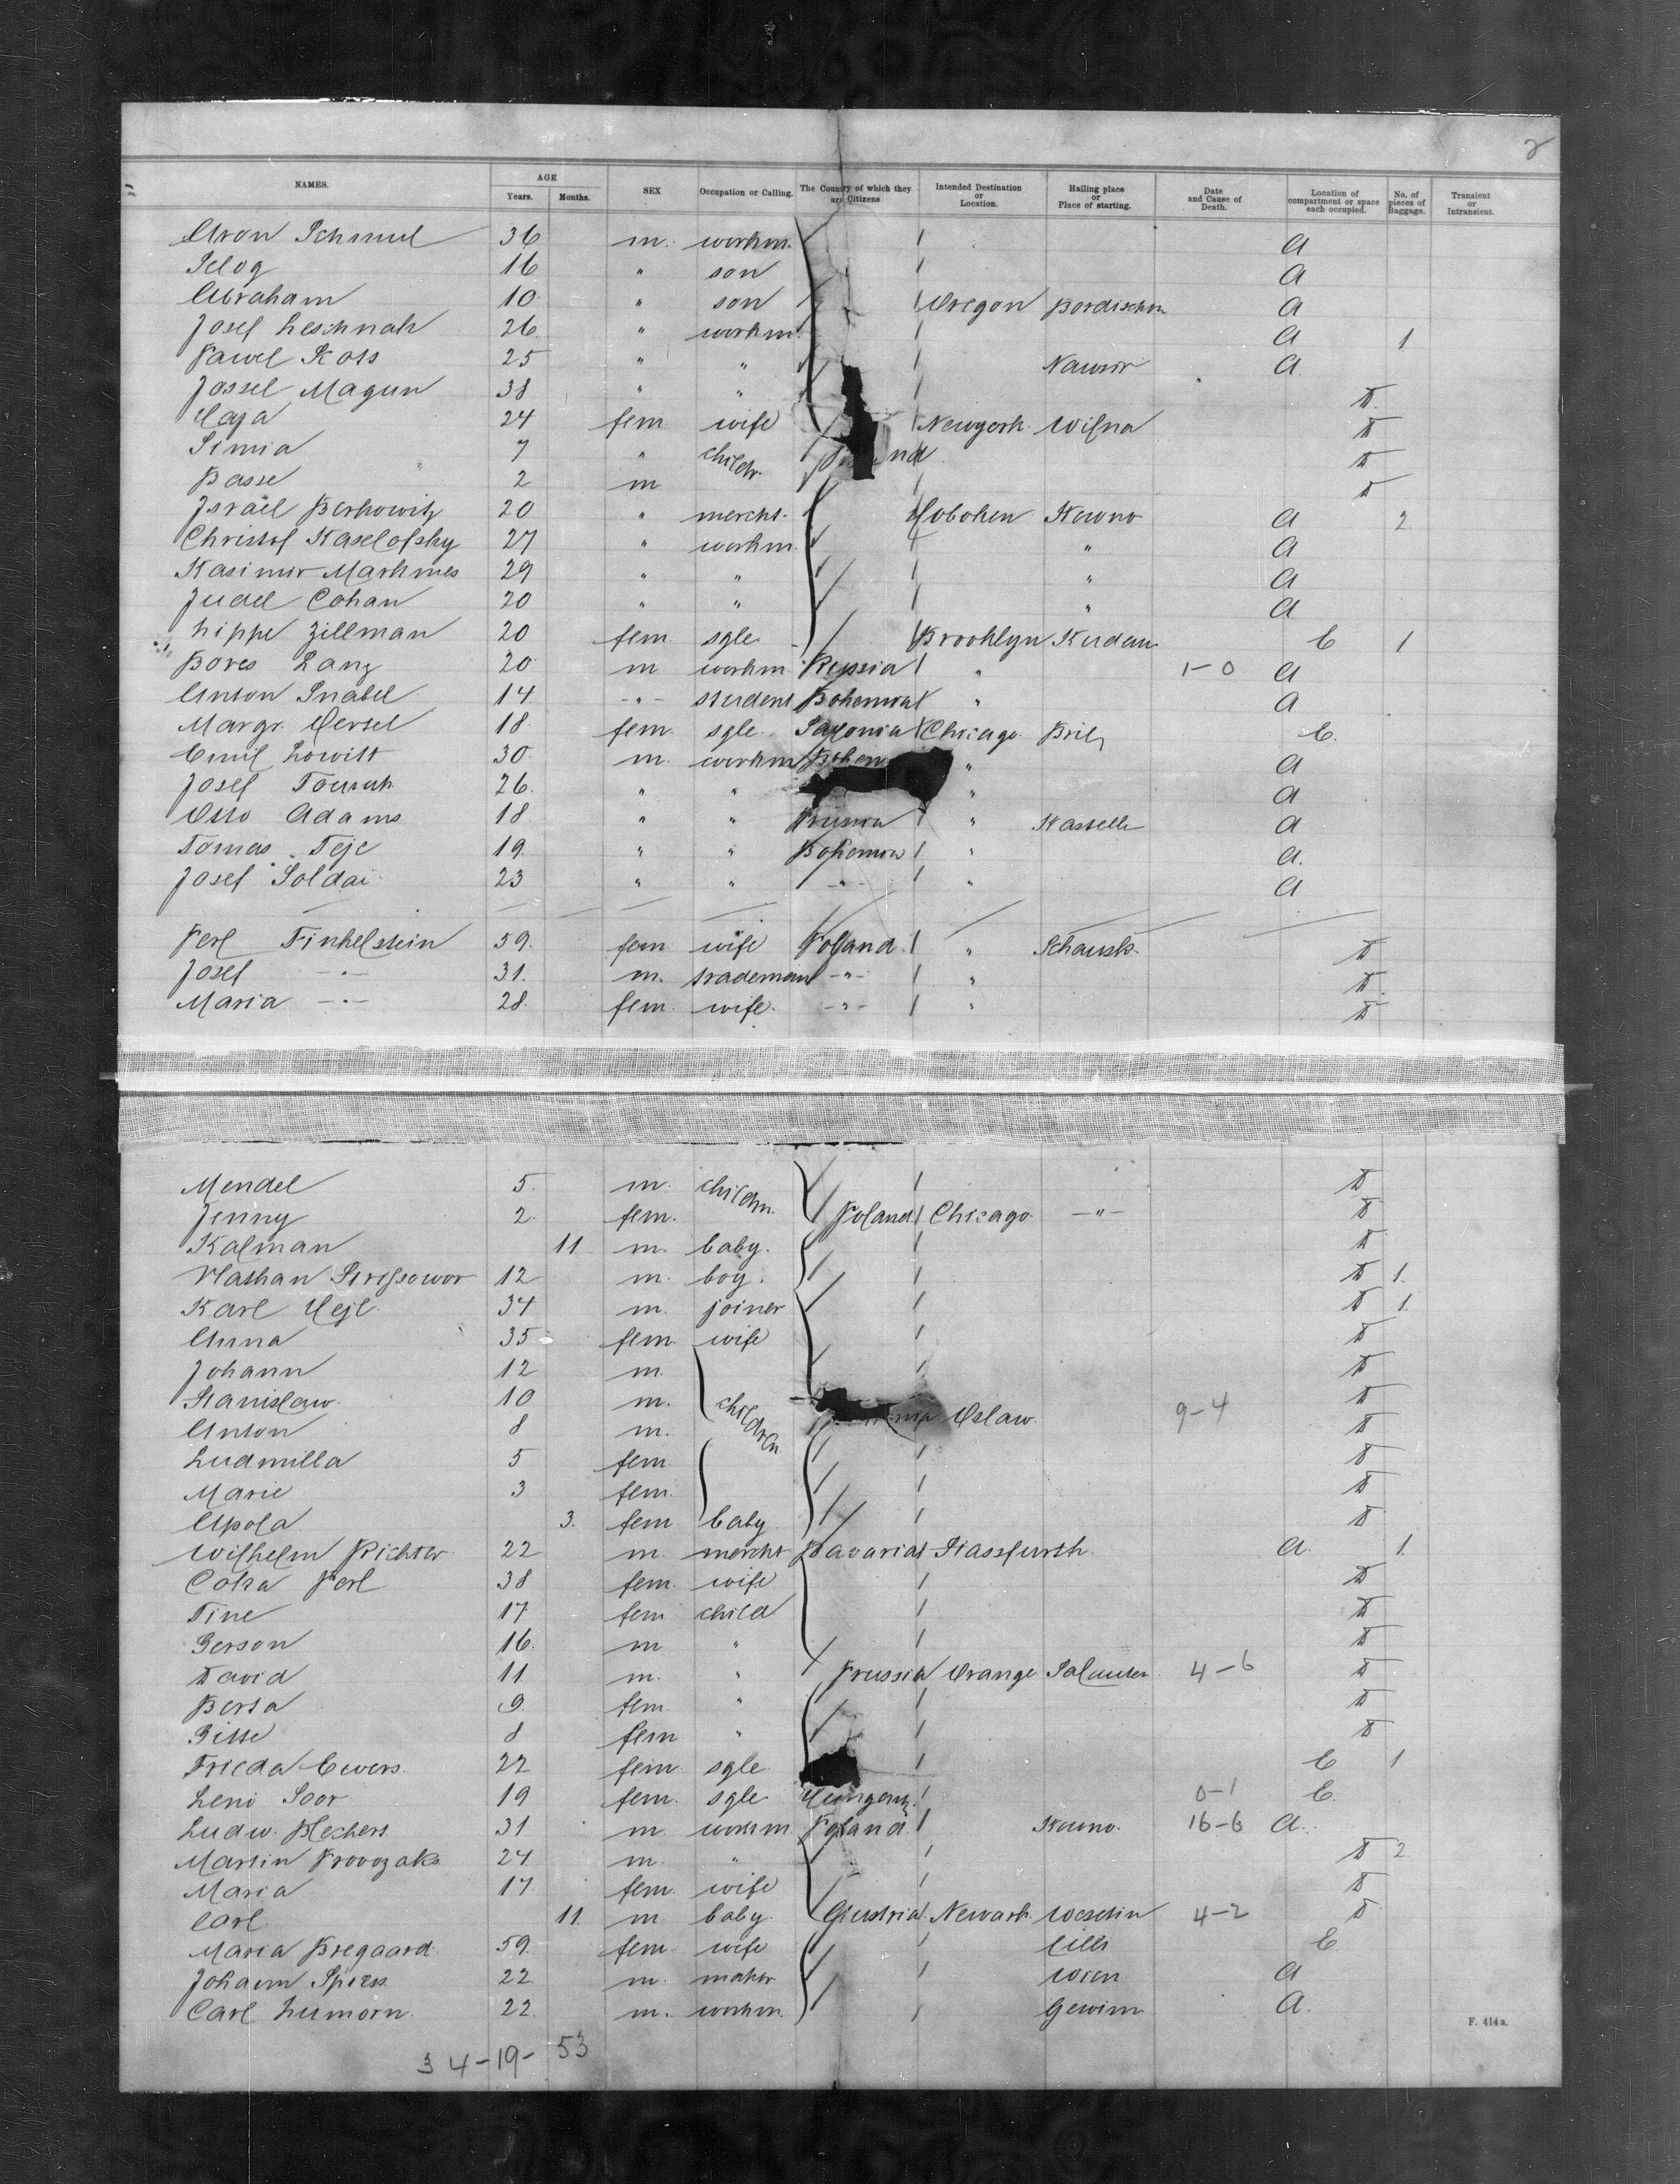 2
NAMES. AGE Years. Months. SEX Occupation or Calling. The Country of which they are Citizens Intended Destination or Location. Hailing place or Place of starting. Date and Cause of Death. Location of compartment or space each occupied. No. of pieces of Baggage. Transient or Intransient.
Aron Schmul 36 m. workm. A
Selog 16 " son A
Abraham 10 " son Oregon A
Josef Leschnak 26 " workm. A 1
Pawel Kots 25 " " A
Jossel Magun 38 " " D
Haga 24 fem wife Newyork Wilna D
Simia 7 " childr. D
Basse 2 m D
Israel Berkowitz 20 " mercht. Hoboken Kowno A 2
Christof Kaselofsky 27 " workm. " A
Kasimir Markmes 29 " " " A
Judel Cohan 20 " " " A
Lippe Zillman 20 fem. sgle Brooklyn C 1
Bores Lanz 20 m workm. Russia " 1-0 A
Anton Snabel 14 -"- student Bohemia " A
Margr. Hertel 18 fem. sgle. Saxonia Chicago C.
Emil Lowitt 30. m. workm " A
Josef 26. " " " A
Otto Adams 18 " " Prussia " A
Tomas Teje 19. " " Bohemia " A.
Josef Soldai 23 " " -"- " A
Perl Finkelstein 59. fem wife Poland " D
Josef -"- 31. m. trademan -"- " D.
Maria -"- 28. fem. wife. -"- " D
Mendel 5. m. childrn. D
Jenny 2 fem. Poland Chicago -"- D
Kalman 11 m. baby. D
Nathan 12 m. boy. D 1.
Karl Hejl 34 m. joiner D 1.
Anna 35 fem. wife D
Johann 12 m. D
Stanislaw 10 m. children D
Anton 8 m. 9-4 D
Ludmilla 5 fem D
Marie 3 fem. D
Apola 3. fem baby D
Wilhelm Richter 22 m. mercht Bavaria Stassfurth A. 1.
Perl 38 fem. wife D
Tine 17 fem child D
Gerson 16. m " D
David 11 m. " Prussia Orange 4-6 D
Berta 9. fem. " D
Gitte 8 fem " D
Frieda Ewers. 22 fem. sgle. C 1
Leni Soor 19 fem. sgle 0-1 C.
Ludw. Blechert 31 m. workm Poland. Kowno. 16-6 A.
Martin 24 m. " D 2
Maria 17. fem. wife D
Carl 11. m. baby. Austria Newark 4-2 D
Maria Bregaard 59. fem. wife Cilli C
Johann 22. m. Wien A
Carl Lumorn. 22. m. workm. A.
34-19-53
F. 414a.